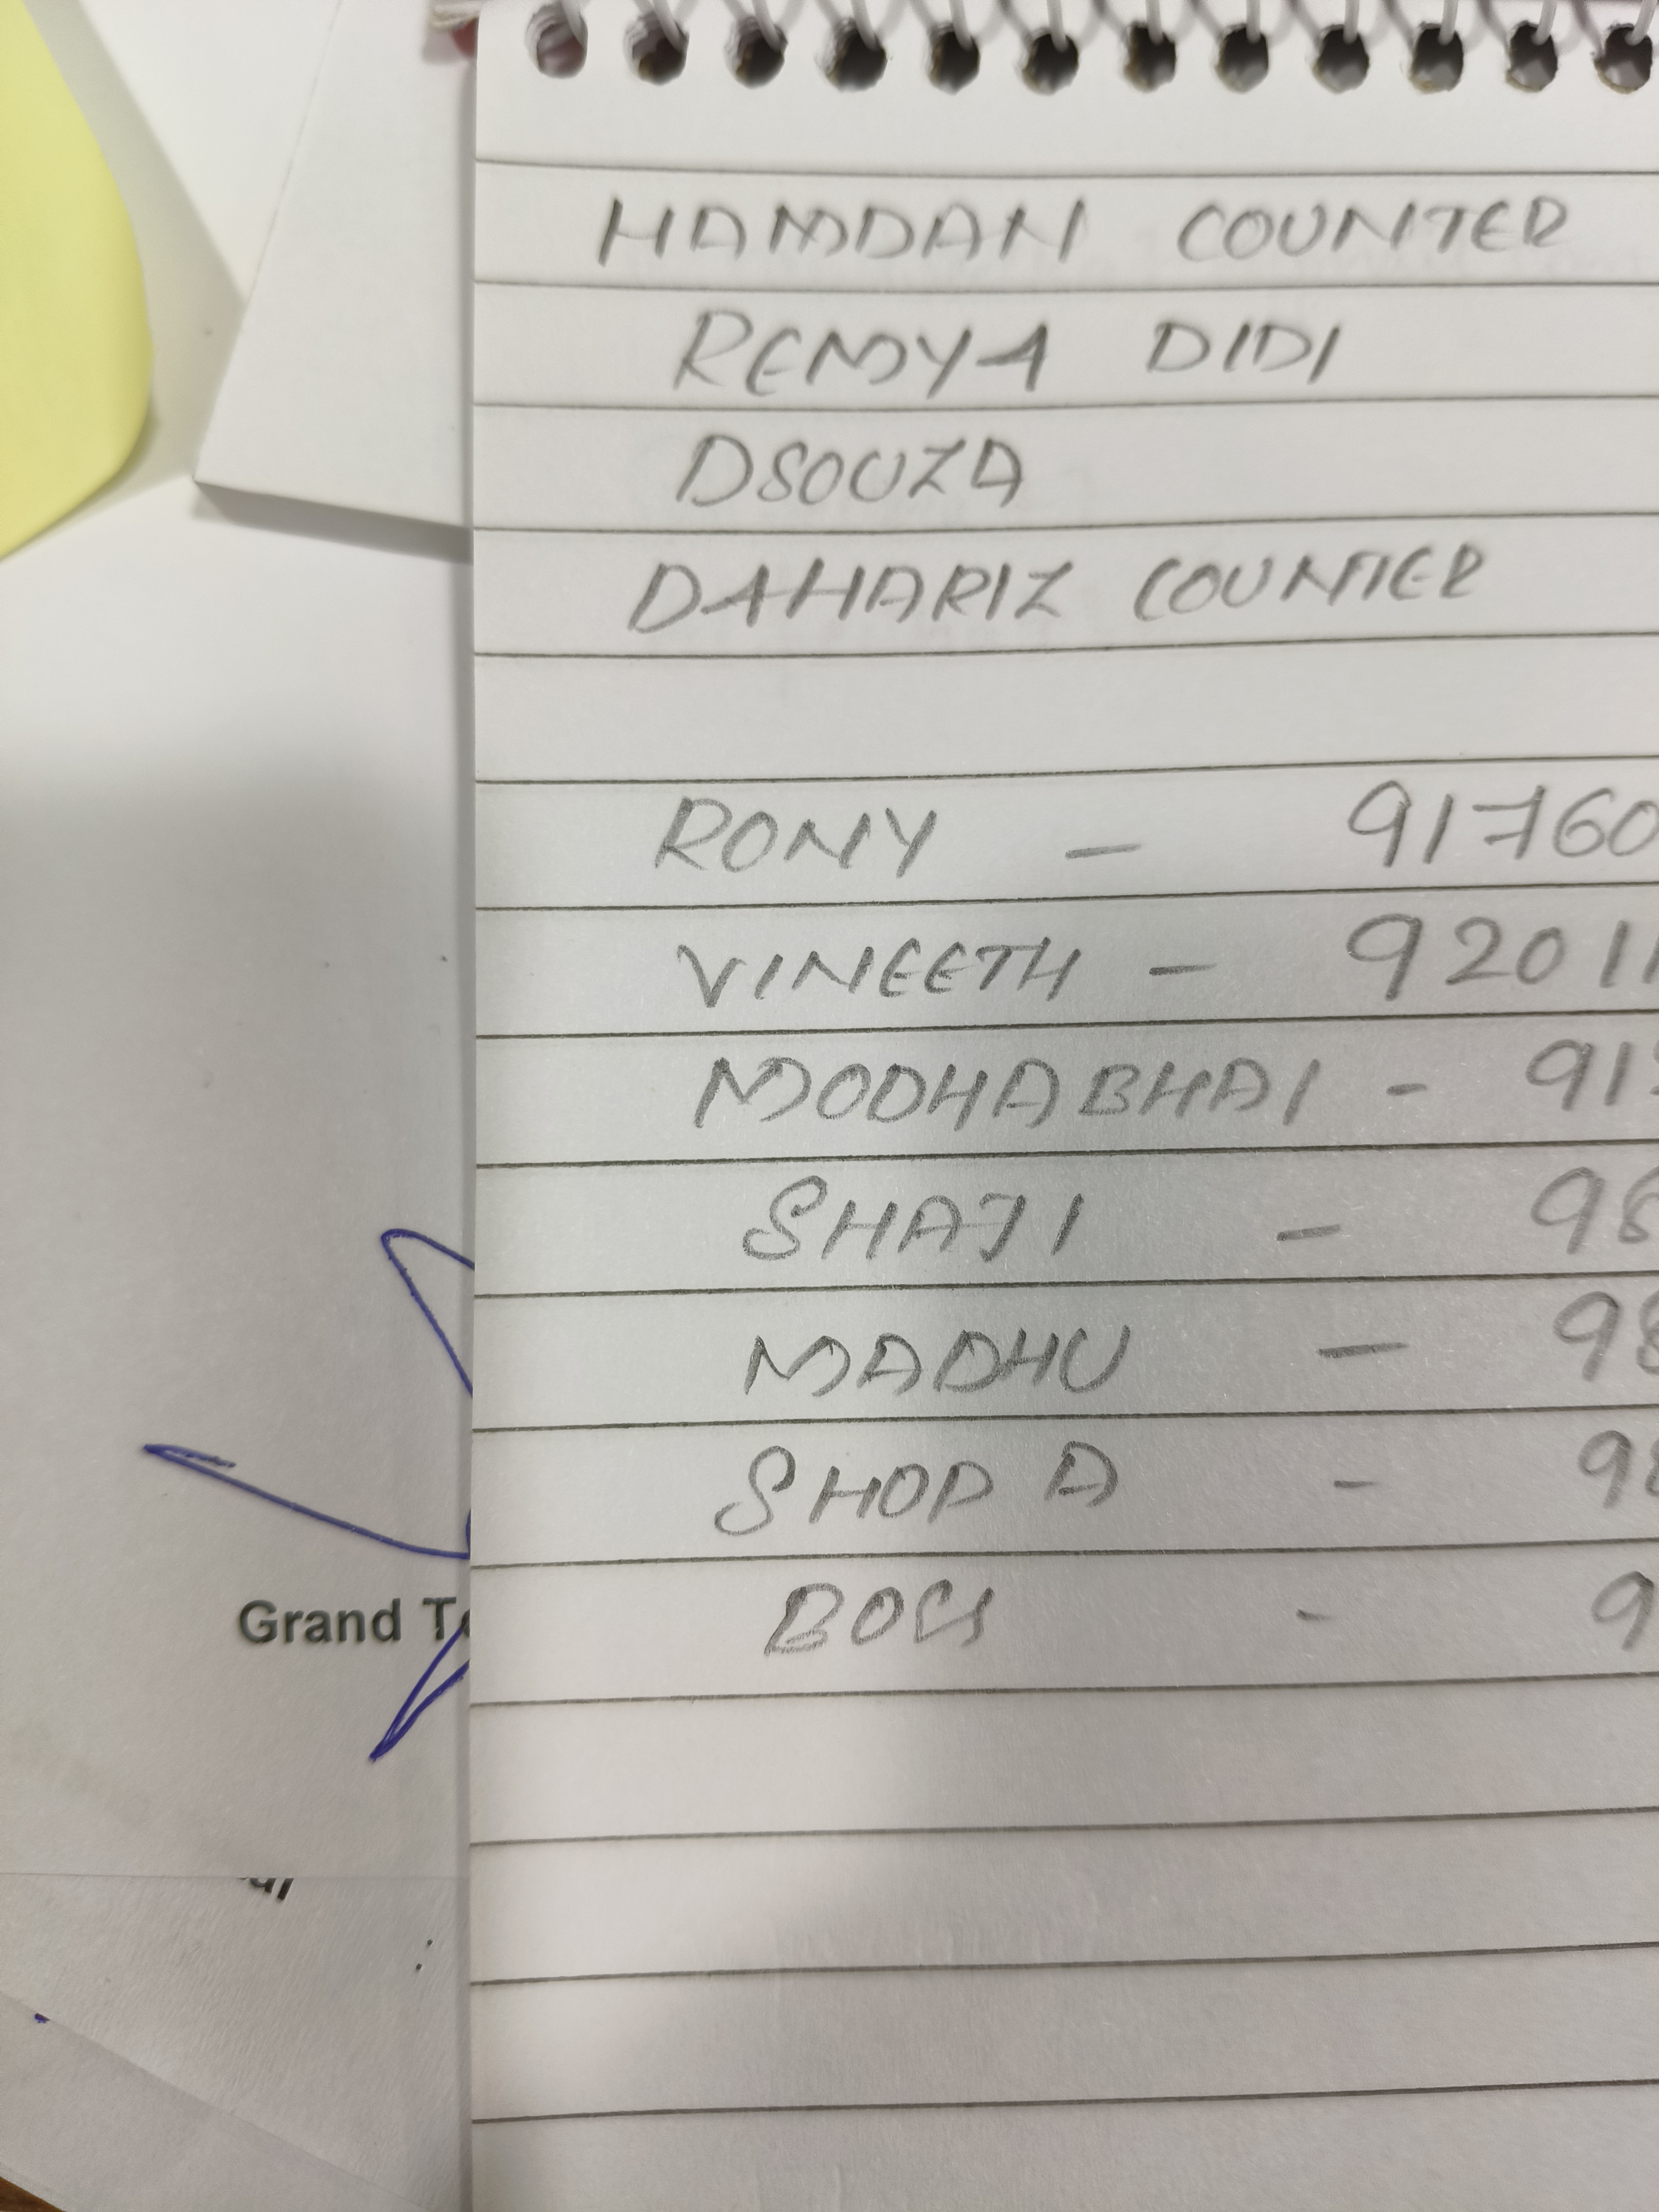 HAMDAN COUNTER
REMYA DIDI
DSOUZA
DAHARIZ COUNTER
RONY - 91760
VINEETH - 92011
MODHABHAI - 91
SHAJI - 98
MADHU - 98
SHOP A - 98
- 9
Grand To